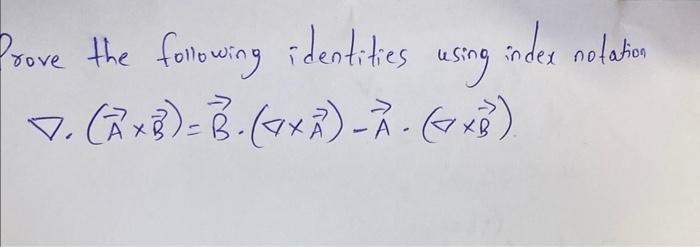 Prove the following identities using index notation
∇. (A⃗ × B⃗) = B⃗ . (∇ × A⃗) - A⃗ . (∇ × B⃗)